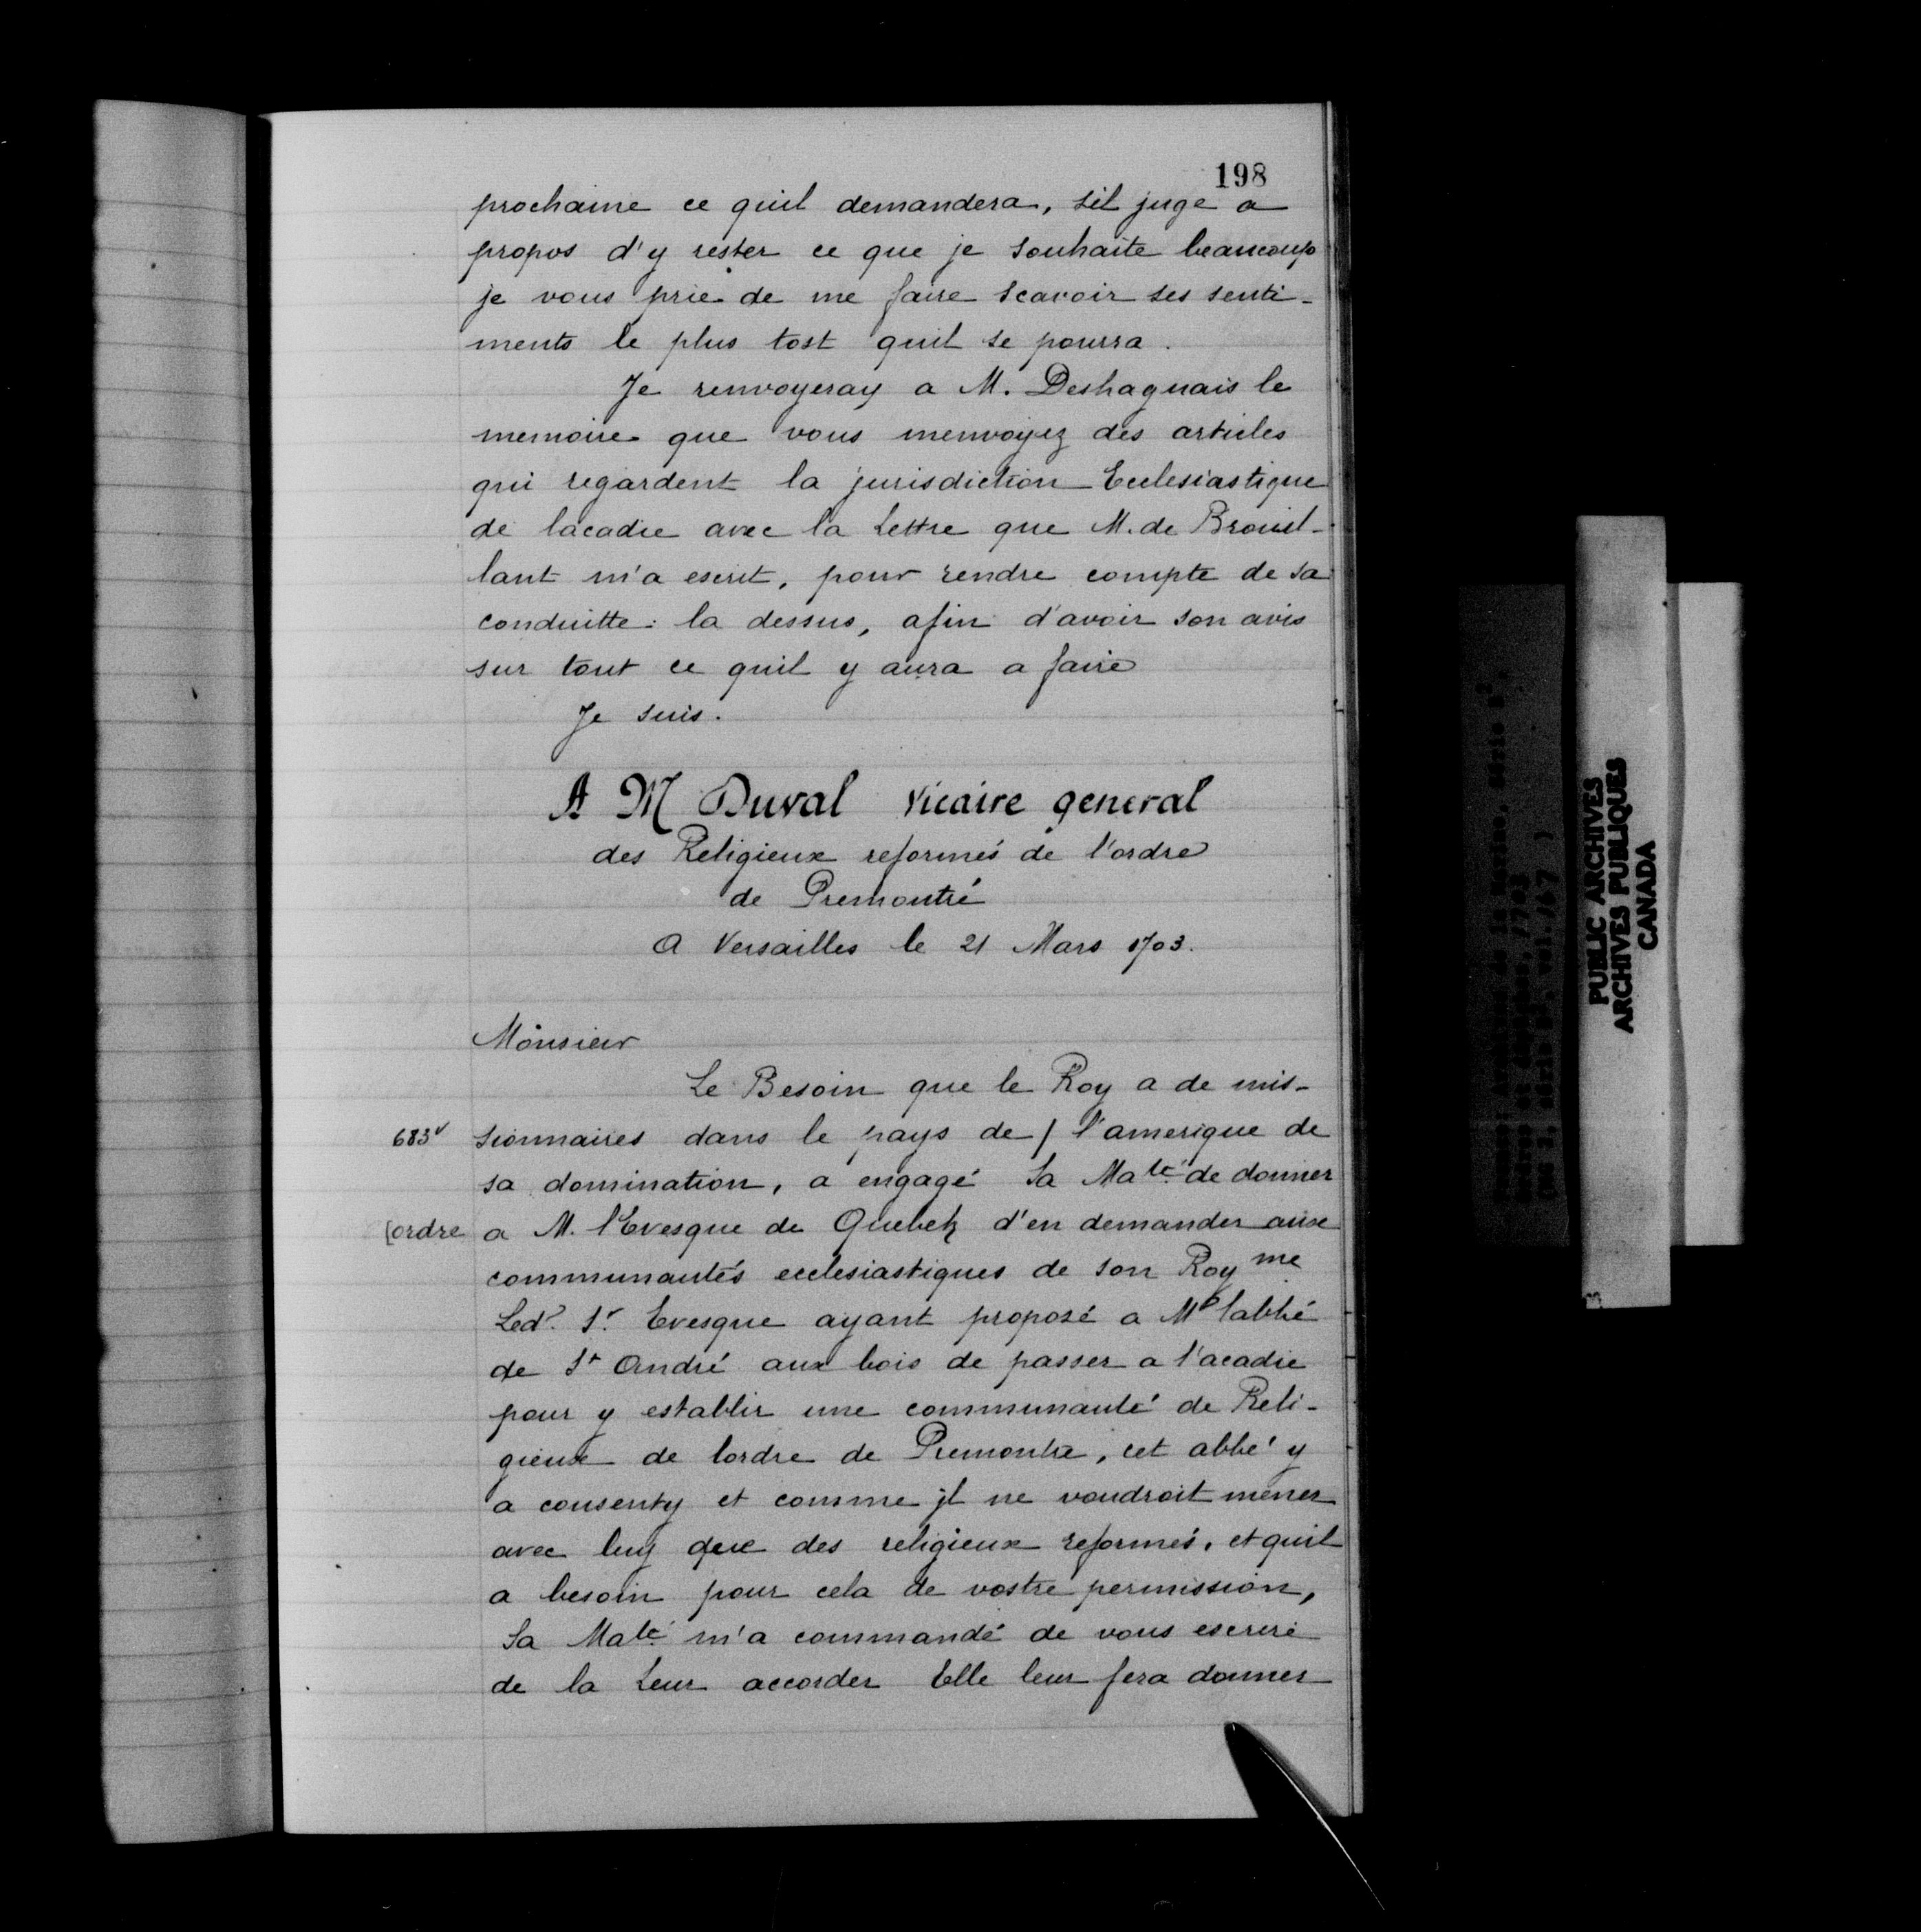 198
prochaine ce quil demandera, sil juge a
propos d'y rester ce que je souhaite beaucoup
je vous prie de me faire scavoir ses senti-
ments le plus tost quil se pourra.
Je renvoyeray a M. Deshaguais le
memoire que vous menvoyez des articles
qui regardent la jurisdiction Ecclesiastique
de lacadie avec la Lettre que M. de Brouil-
lant m'a escrit, pour rendre compte de sa
conduitte la dessus, afin d'avoir son avis
sur tout ce quil y aura a faire
Je suis.
A M Duval Vicaire general
des Religieux reformés de l'ordre
de Premontré
A Versailles le 21 Mars 1703.
Monsieur
Le Besoin que le Roy a de mis-
683v sionnaires dans le pays de / l'amerique de
sa domination, a engagé Sa Maté de donner
[ordre a M. l'Evesque de Quebek d'en demander aux
communautés ecclesiastiques de son Royme
Led. Sr. Evesque ayant proposé a Mr labbé
de St André aux bois de passer a l'acadie
pour y establir une communauté de Reli-
gieux de lordre de Premontre, cet abbé y
a consenty et comme jl ne voudroit mener
avec luy que des religieux reformés, et quil
a besoin pour cela de vostre permission,
Sa Maté m'a commandé de vous escrire
de la Leur accorder Elle leur fera donner
PUBLIC ARCHIVES
ARCHIVES PUBLIQUES
CANADA